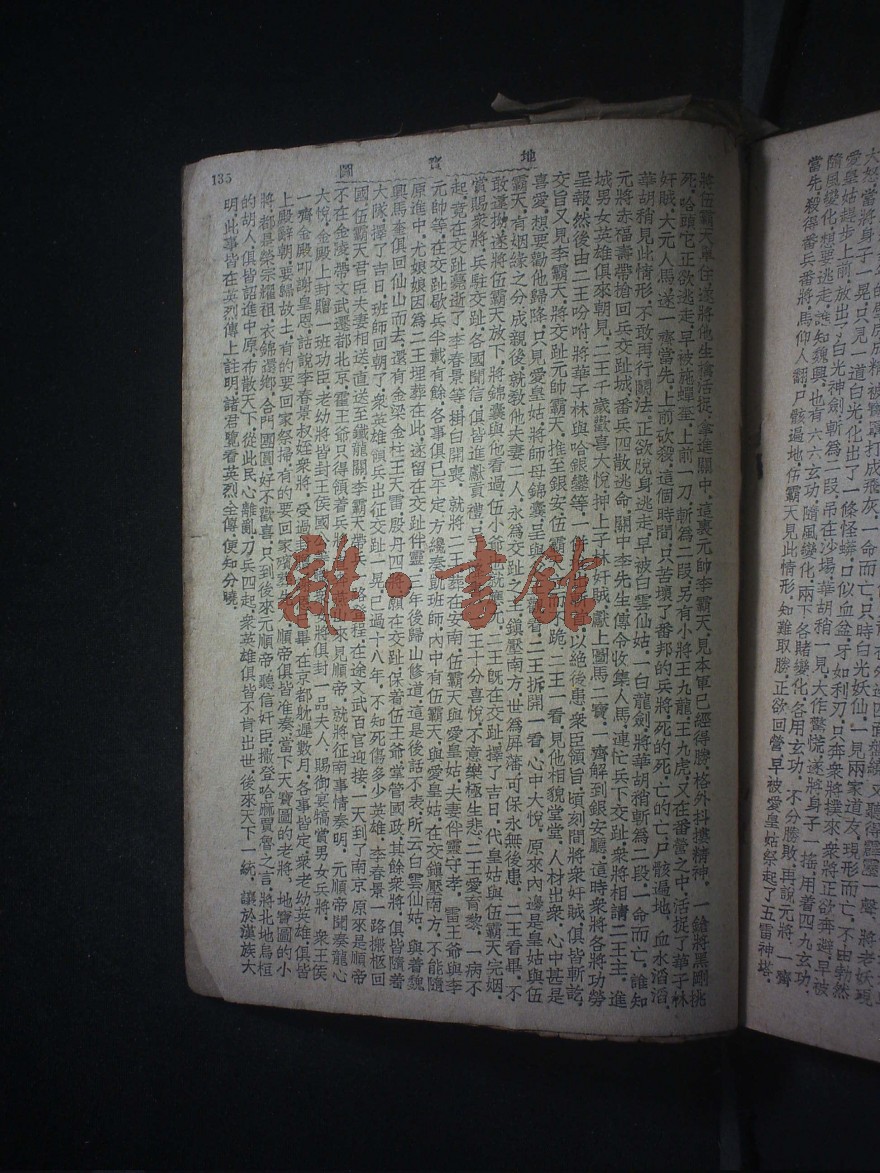 大怒當將身子一晃只見一道白光化出了一條怪蟒口似血盆牙如利刃只奔衆將撲來衆將正欲奔避早被
愛皇姑趕步上前放出了白光神劍斬為二段吊在沙場華胡稍一見大作驚慌遂將身子一搖用着四九玄功
隨風變化想要逃走誰知魏興也有六六玄功隨風變化兩下各賭變化各用玄功不分勝敗再說元將一齊
當先殺得番兵番將馬仰人翻尸骸遍地伍霸天見此情形知難取勝正欲回營早被愛皇姑祭起了五雷神塔
地寶圖
將伍霸天罩住遂將他生擒活捉拿進關中這裏元帥李霸天見本軍已經得勝格外抖擻精神一鎗將黑剛挑
死哈頭陀正欲逃走早被施蟬至上前一刀斬為二段另有小將王九龍王九虎又在番營之中活捉了華子林
奸賊大元人馬遂一齊當先上前砍殺這個時間只苦壞了番邦的兵將死的死亡的亡尸骸遍地血水滔滔
華胡稍見此情形不敢再行鬬法正欲脫身逃走早被白雲仙姑一白龍劍將華胡稍斬為二段一命而亡誰知
元將赤福壽帶槍回兵交趾城番兵四散逃命關中李先生傳令收集人馬連忙兵下交趾衆將相請二王主進
城男女英雄俱來朝見二王千歲歡喜大悅押上子林奸賊獻上圖馬二寶一齊解到銀安廳這時衆將各將功勞
呈報然後由二王吩咐將華子林與哈銀鑾等一以絕後患衆臣領旨頃刻間將衆奸賊俱皆斬訖
交旨又見李霸天將交趾元帥霸天推至銀安伍霸跪二王一看見他相貌堂堂人材出衆心中甚是
喜愛想要勸他歸降只見愛皇姑將師母錦囊呈與看二王拆開一看心中大悅原來內邊是皇姑與伍
霸天有姻緣之分成親後就教他夫妻二人永為交趾之主鎮壓南方世為屏藩可保永無後患二王看畢不
敢違拗遂將伍霸天放下將錦囊與他看過伍小爺就應允二王既在交趾擇了吉日代皇姑與伍霸天完姻
賞賜衆將兵駐交趾各國聞信俱皆進獻貢禮王十分喜悅不意樂極生悲二王愛育黎一病不
起竟在交趾薨逝了李春景等掛白開喪就將二王葬在安南伍霸天與愛皇姑夫妻伴靈守孝雷王爺與李
元帥等在交趾歇兵半載有餘各事俱已平定方纔奏凱班師內中有伍霸天與愛皇姑在交鎮壓南方不能隨
原進中尤娘娘因為二王埋葬在此遂留在交趾伴靈年後歸山修道這是後話不表所云白雲仙姑與着魏
興馬奎俱回仙山而去還有金梁金柱王天雷殷丹四將願在交趾保着伍王爺掌管國政其餘衆將俱皆隨着
大隊擇了吉日班師回朝了衆英雄領兵出征交趾一晃已過十八年不知死傷多少英雄李春景一路搬柩回
國伍霸天君臣夫妻相送直送至鐵龍關李霸天帶兵將程在途文武百官迎接一天到了南京原來是順帝
不在金陵帶文武遷都北京雷王爺只得領着兵來見順帝就將征南事情奏明元順帝聞奏龍心
大悅金殿上封贈一班功臣老幼將皆封王侯國將俱封一品夫人賜御宴犒賞男女兵將衆王侯
一齊金殿叩謝皇恩話說李春景叔姪衆將受過封畢在京都躭遲數月各事皆定衆老幼英雄俱皆
上殿辭朝要歸故土有的要回家祭掃有的要回家殯順帝俱皆准奏當下天寶圖的老將地寶圖的小
將都是榮宗耀祖衣錦還鄉合門團圓好不歡喜只到後來元順帝聽信奸臣撒登哈麻賈魯之言將北地烏桓
的胡人俱皆詔進中原布散天下從此民心離亂刀兵四起衆英雄俱皆不肯出世後來天下一統讓於漢族大
明此事皆在英烈傳上註明諸君覽看英烈全傳便知分曉
135
雜·書館